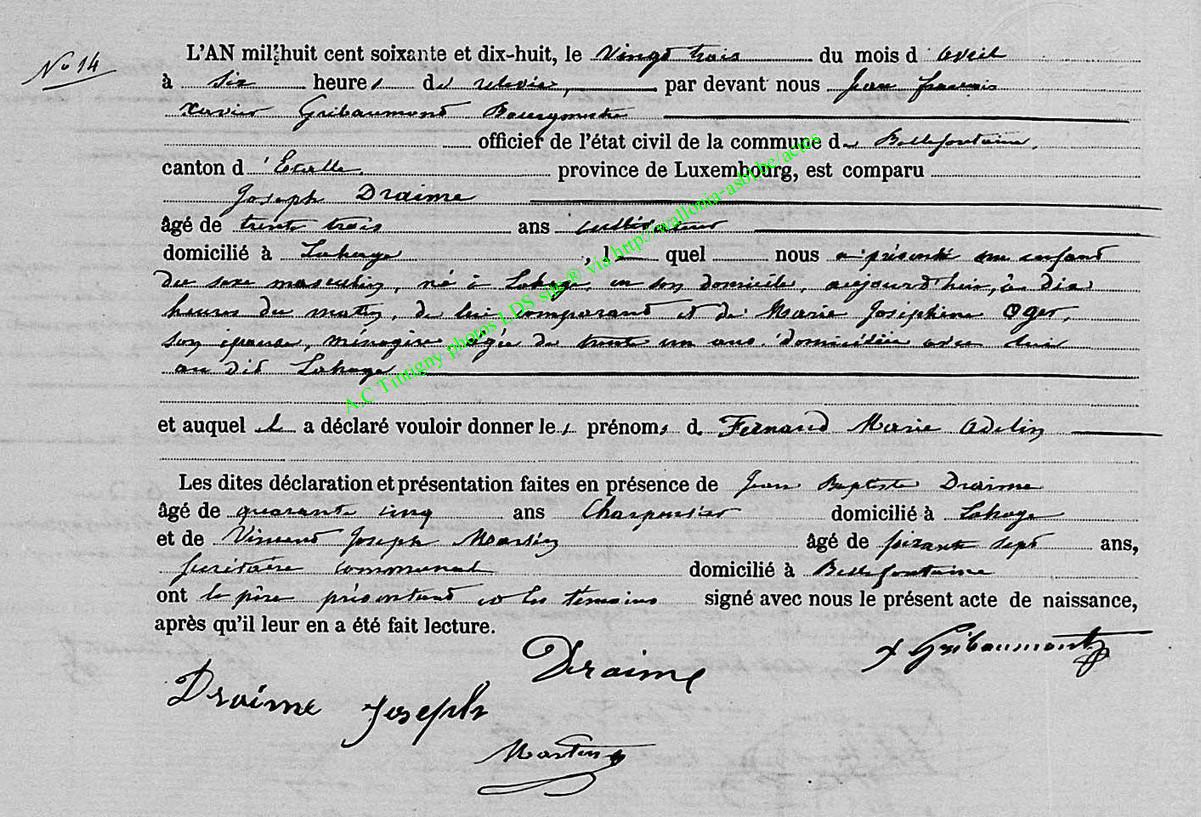 No 14
L'AN mil huit cent soixante et dix-huit, le vingt trois du mois d'avril
à six heures de relevée, par devant nous Jean françois
Xavier Gribaumont Bourgmestre
officier de l'état civil de la commune de Bellefontaine,
canton d'Etalle province de Luxembourg, est comparu
Joseph Draime
âgé de trente trois ans cultivateur
domicilié à Lahage, lequel nous a présenté un enfant
du sexe masculin, né à Lahage, en son domicile, aujourd'hui, à dix
heures du matin, de lui comparant et de Marie Joséphine Oger,
son épouse, ménagère âgée de trente un ans domiciliée avec lui
au dit Lahage
et auquel il a déclaré vouloir donner les prénoms de Fernand Marie Adelin
Les dites déclaration et présentation faites en présence de Jean Baptiste Draime
âgé de quarante cinq ans Charpentier domicilié à Lahage
et de Vincent Joseph Martin âgé de soixante sept ans,
secrétaire communal domicilié à Bellefontaine
ont le père présentant et les témoins signé avec nous le présent acte de naissance,
après qu'il leur en a été fait lecture.
Draime
x Gribaumont
Draime Joseph
Martin
A.C Tintigny photos LDS sur ® via http://wallonia-asbl.be/actes